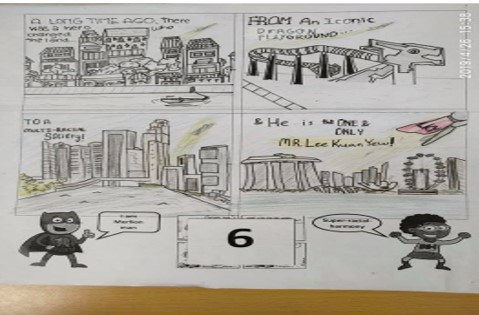 A LONG TIME AGO, There
was a Hero who
changed
the land...
FROM An Iconic
DRAGON
PLAYGROUND...
TO A
MULTI-RACIAL
SOCIETY!
& He is the ONE &
ONLY
MR. Lee Kuan Yew!
I am
Merlion
man
6
Super-racial
harmony
2019/4/26 15:38